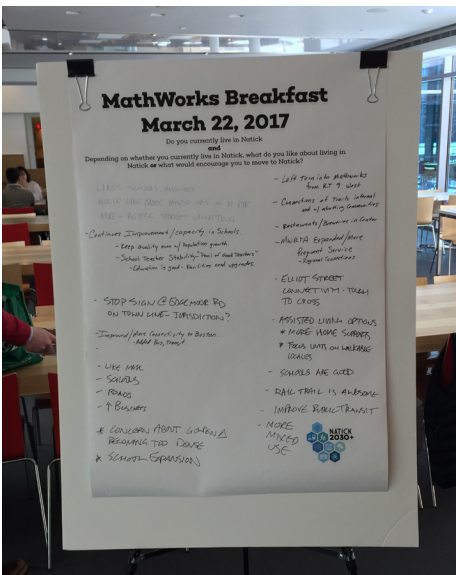 MathWorks Breakfast
March 22, 2017
Do you currently live in Natick
and
Depending on whether you currently live in Natick, what do you like about living in
Natick or what would encourage you to move to Natick?
LIKES SCHOOLS,
- Continues Improvement/capacity in Schools.
- Keep quality even w/ Population growth
- School Teacher Stability "Pool of Good Teachers"
- Education is good - Facilities need upgrades
- STOP SIGN @ GOVERNOR RD
ON TOWN LINE - JURISDICTION?
- Improved/More Connectivity to Boston.
- Added Bus, Transit
- LIKE MALL
- SCHOOLS
- ROADS
- ↑ BUSINESS
* CONCERN ABOUT
BECOMING TOO DENSE
* SCHOOL EXPANSION
- Left Turn into Mathworks
from RT 9 West
- Connections of Trails internal
and w/ abutting Communities
- Restaurants/Breweries in Center
- MWRTA Expanded/More
Frequent Service
- Regional Connections
- ELLIOT STREET
CONNECTIVITY - TOUGH
TO CROSS
- ASSISTED LIVING OPTIONS
* MORE HOME SUPPORTS
* FOCUS UNITS ON WALKABLE
LOCALES
- SCHOOLS ARE GOOD
- RAIL TRAIL IS AWESOME
- IMPROVE PUBLIC TRANSIT
- MORE
MIXED
USE
NATICK
2030+